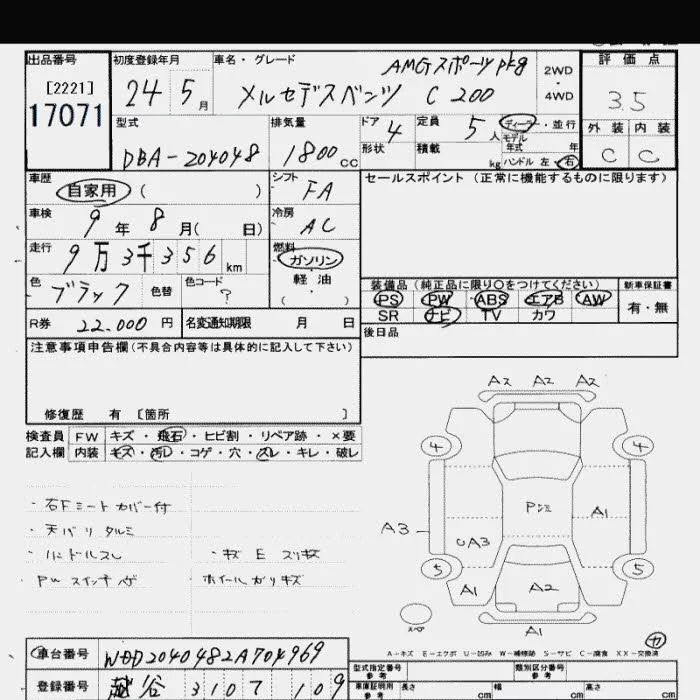 出品番号
[2221]
17071
初度登録年月
24 5月
車名・グレード
AMGスポーツPkg
メルセデスベンツ C 200
2WD
4WD
評価点
3.5
外装 内装
C C
型式
DBA-204048
排気量
1800cc
ドア
4
形状
定員
5人
積載
kg
ディーラー・並行
モデル
年式 年
ハンドル 左・右
車歴
自家用 ( )
シフト
FA
セールスポイント (正常に機能するものに限ります)
車検
9年 8月( 日)
冷房
AC
走行
9万3千356km
燃料
ガソリン
軽・油
( )
色
ブラック
色替
色コード
?
装備品(純正品に限り○をつけてください)
PS PW ABS エアB AW
SR ナビ TV カワ
新車保証書
有・無
R券 22.000円
名変通知期限 月 日
後日品
注意事項申告欄(不具合内容等は具体的に記入して下さい)
修復歴 有 [箇所 ]
検査員 FW キズ・飛石・ヒビ割・リペア跡・×要
記入欄 内装 キズ・汚レ・コゲ・穴・スレ・キレ・破レ
・石Fミートカバー付
・天バリタルミ
・ハンドルスレ
・キズ E スリキズ
・PWスイッチハゲ
ホイールガリキズ
A2 A2 A2
4 4
A1
A3
CA3
5 5
A1
A2
A1
スペア
A-キズ E-エクボ U-凹み W-補修跡 S-サビ C-腐食 XX-交換済
車台番号 WDD2040482A704969
登録番号 越谷 3107 109
型式指定番号
参考
類別区分番号
参考
車庫証明用
参考
長さ cm
幅 cm
高さ cm